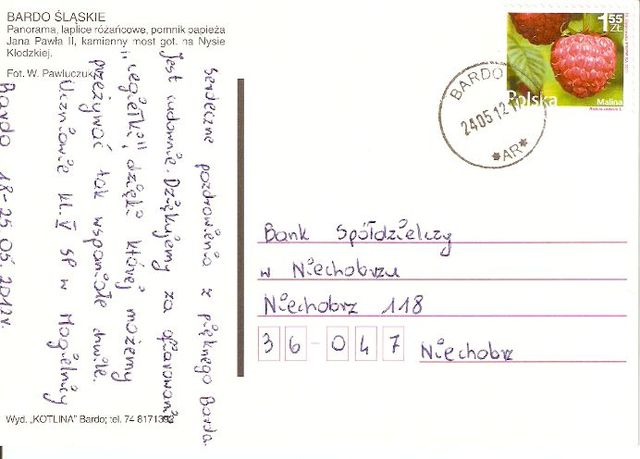 BARDO ŚLĄSKIE
Panorama, laplice różańcowe, pomnik papieża
Jana Pawła II, kamienny most got. na Nysie
Kłodzkiej.
Fot. W. Pawluczuk
Serdeczne pozdrowienia z pięknego Barda.
Jest cudownie. Dziękujemy za ofiarowane
"cegiełki", dzięki której możemy
przeżywać tak wspaniałe chwile.
Uczniowie kl. V SP w Mogielnicy
Bardo 18-25.05.2012r.
Wyd. „KOTLINA" Bardo; tel. 74 8171
1.55
ZŁ
Polska
Malina
BARDO
240512
*AR*
Bank Spółdzielczy
w Niechobrzu
Niechobrz 118
36-047 Niechobrz